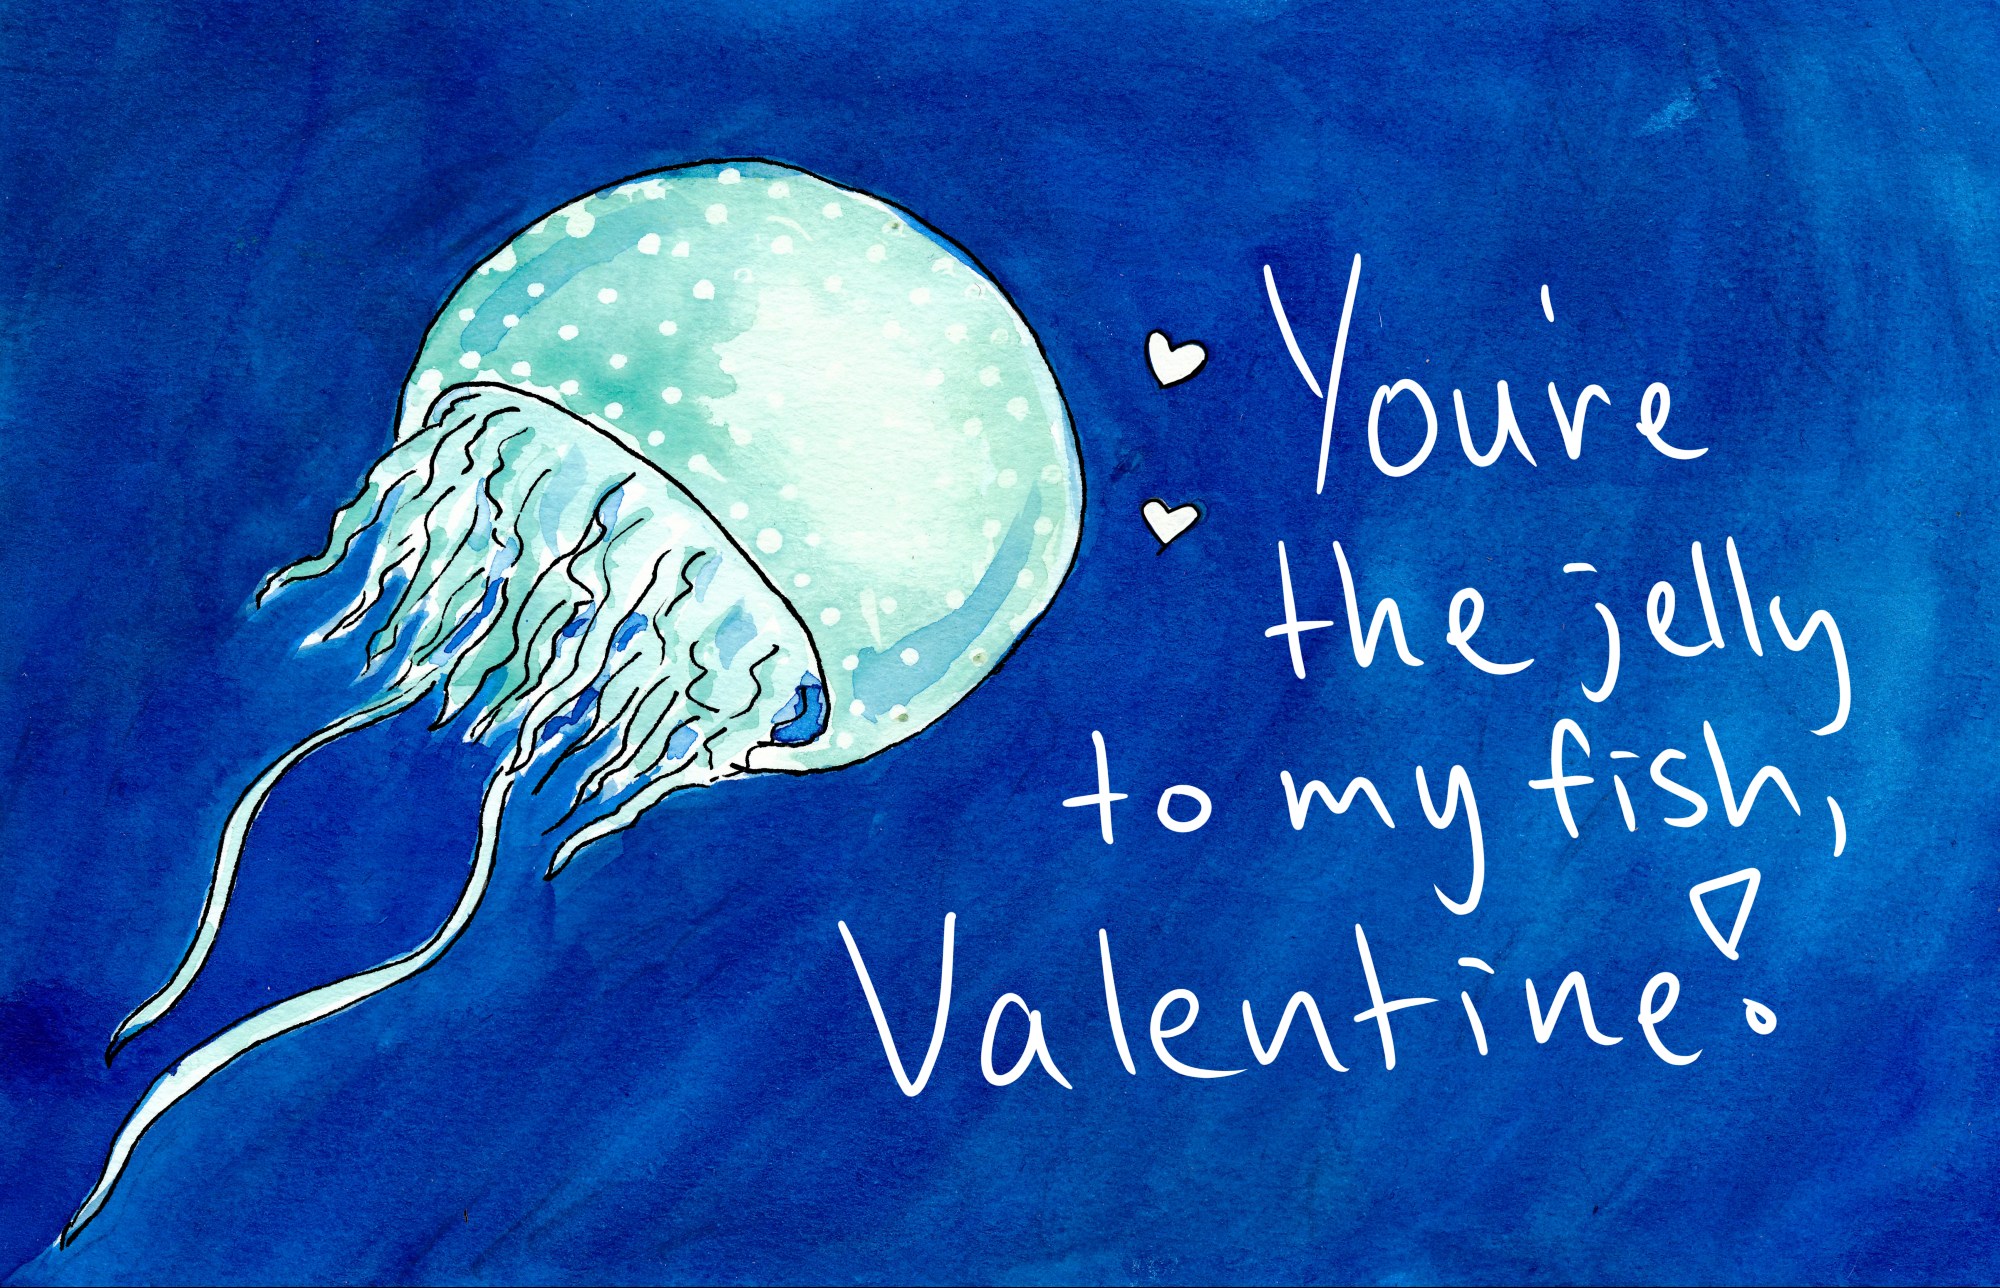 You're
the jelly
to my fish,
Valentine!